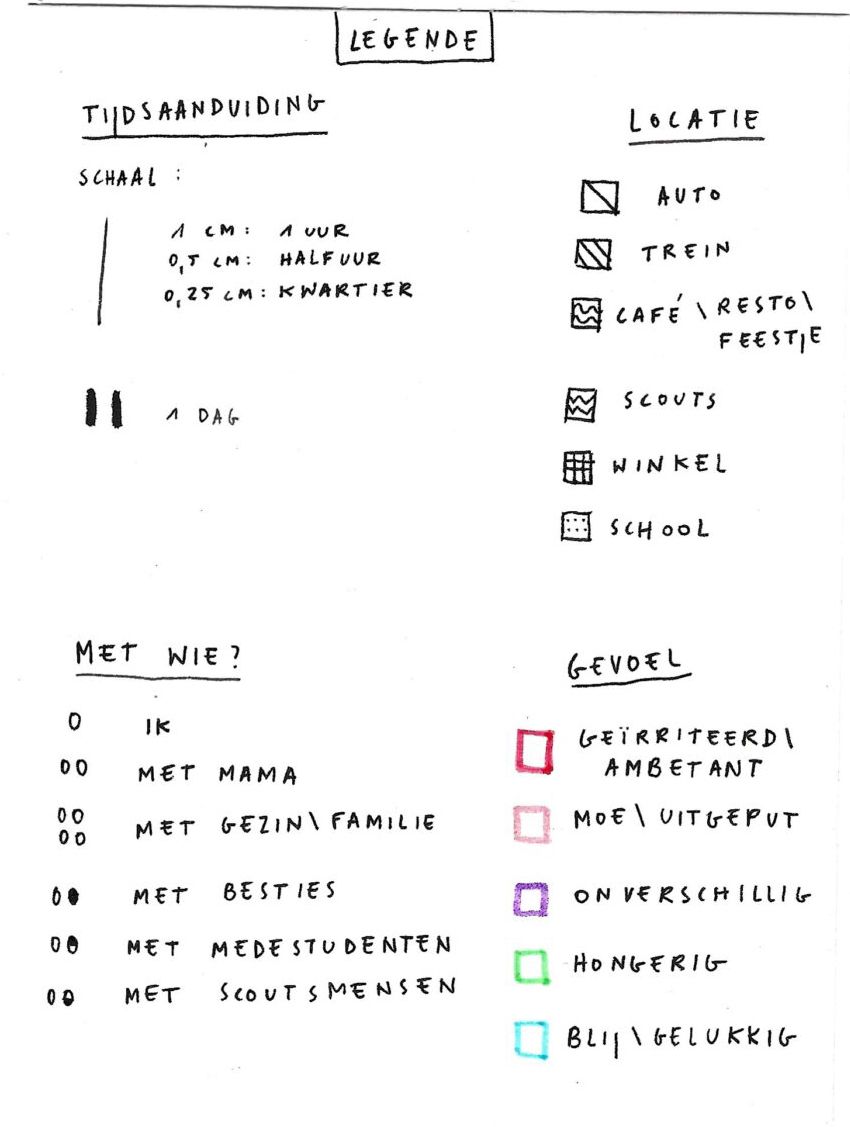 LEGENDE
TIJDSAANDUIDING
SCHAAL :
1 CM : 1 UUR
0,5 CM : HALFUUR
0,25 CM : KWARTIER
1 DAG
LOCATIE
AUTO
TREIN
CAFÉ \ RESTO \
FEESTJE
SCOUTS
WINKEL
SCHOOL
MET WIE?
IK
MET MAMA
MET GEZIN \ FAMILIE
MET BESTIES
MET MEDESTUDENTEN
MET SCOUTSMENSEN
GEVOEL
GEÏRRITEERD \
AMBETANT
MOE \ UITGEPUT
ONVERSCHILLIG
HONGERIG
BLIJ \ GELUKKIG